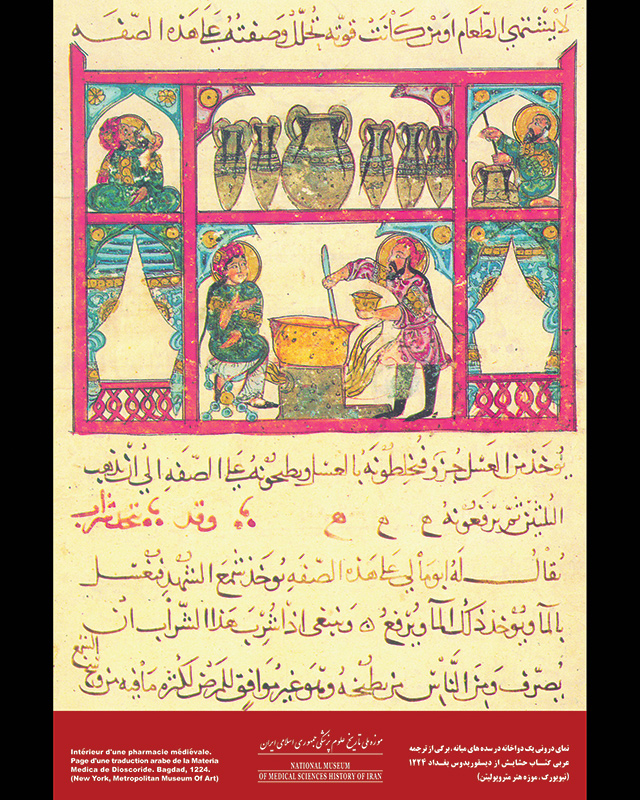 لا يشتهي الطعام او من كانت قوته تحلل وصفته على هذه الصفه
يوخذ من العسل جزو فيخلطونه بالعسل ويطبخونه على الصفه الى ان يذهب
الثلثين ثم يرفعونه وقد يتخذ شراب
يقال له ابومالي على هذه الصفه يوخذ شمع الشهد فيغسل
بالما ويوخذ ذلك الما ويرفع وينبغي اذا شرب هذا الشراب ان
يصرف ومن الناس من يطبخه وهو غير موافق للمرض لكثره ما فيه من وسخ
الشمع
نمای درونی یک دواخانه در سده های میانه ، برگی از ترجمه
عربی کتاب حشایش از دیسقوریدوس بغداد ۱۲۲۴
(نیویورک ، موزه هنر متروپولیتن)
موزه ملی تاریخ علوم پزشکی جمهوری اسلامی ایران
NATIONAL MUSEUM
OF MEDICAL SCIENCES HISTORY OF IRAN
Intérieur d'une pharmacie médiévale.
Page d'une traduction arabe de la Materia
Medica de Dioscoride. Bagdad, 1224.
(New York, Metropolitan Museum Of Art)